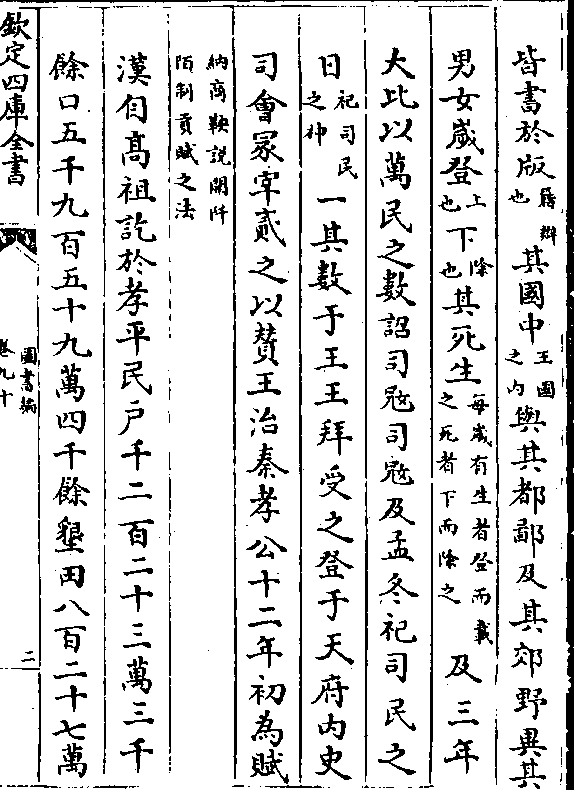 皆書於版籍也辯其國中王國之内與其都鄙及其郊野異其
男女歲登上也下除也其死生每歲有生者登而載之死者下而除之及三年
大比以萬民之數詔司冦司冦及孟冬祀司民之
日祀司民之神一其數于王王拜受之登于天府内史
司會冡宰貳之以賛王治秦孝公十二年初為賦
納商鞅説開阡陌制貢賦之法
漢自髙祖訖於孝平民户千二百二十三萬三千
餘口五千九百五十九萬四千餘墾田八百二十七萬
欽定四庫全書
圖書編
卷九十
二